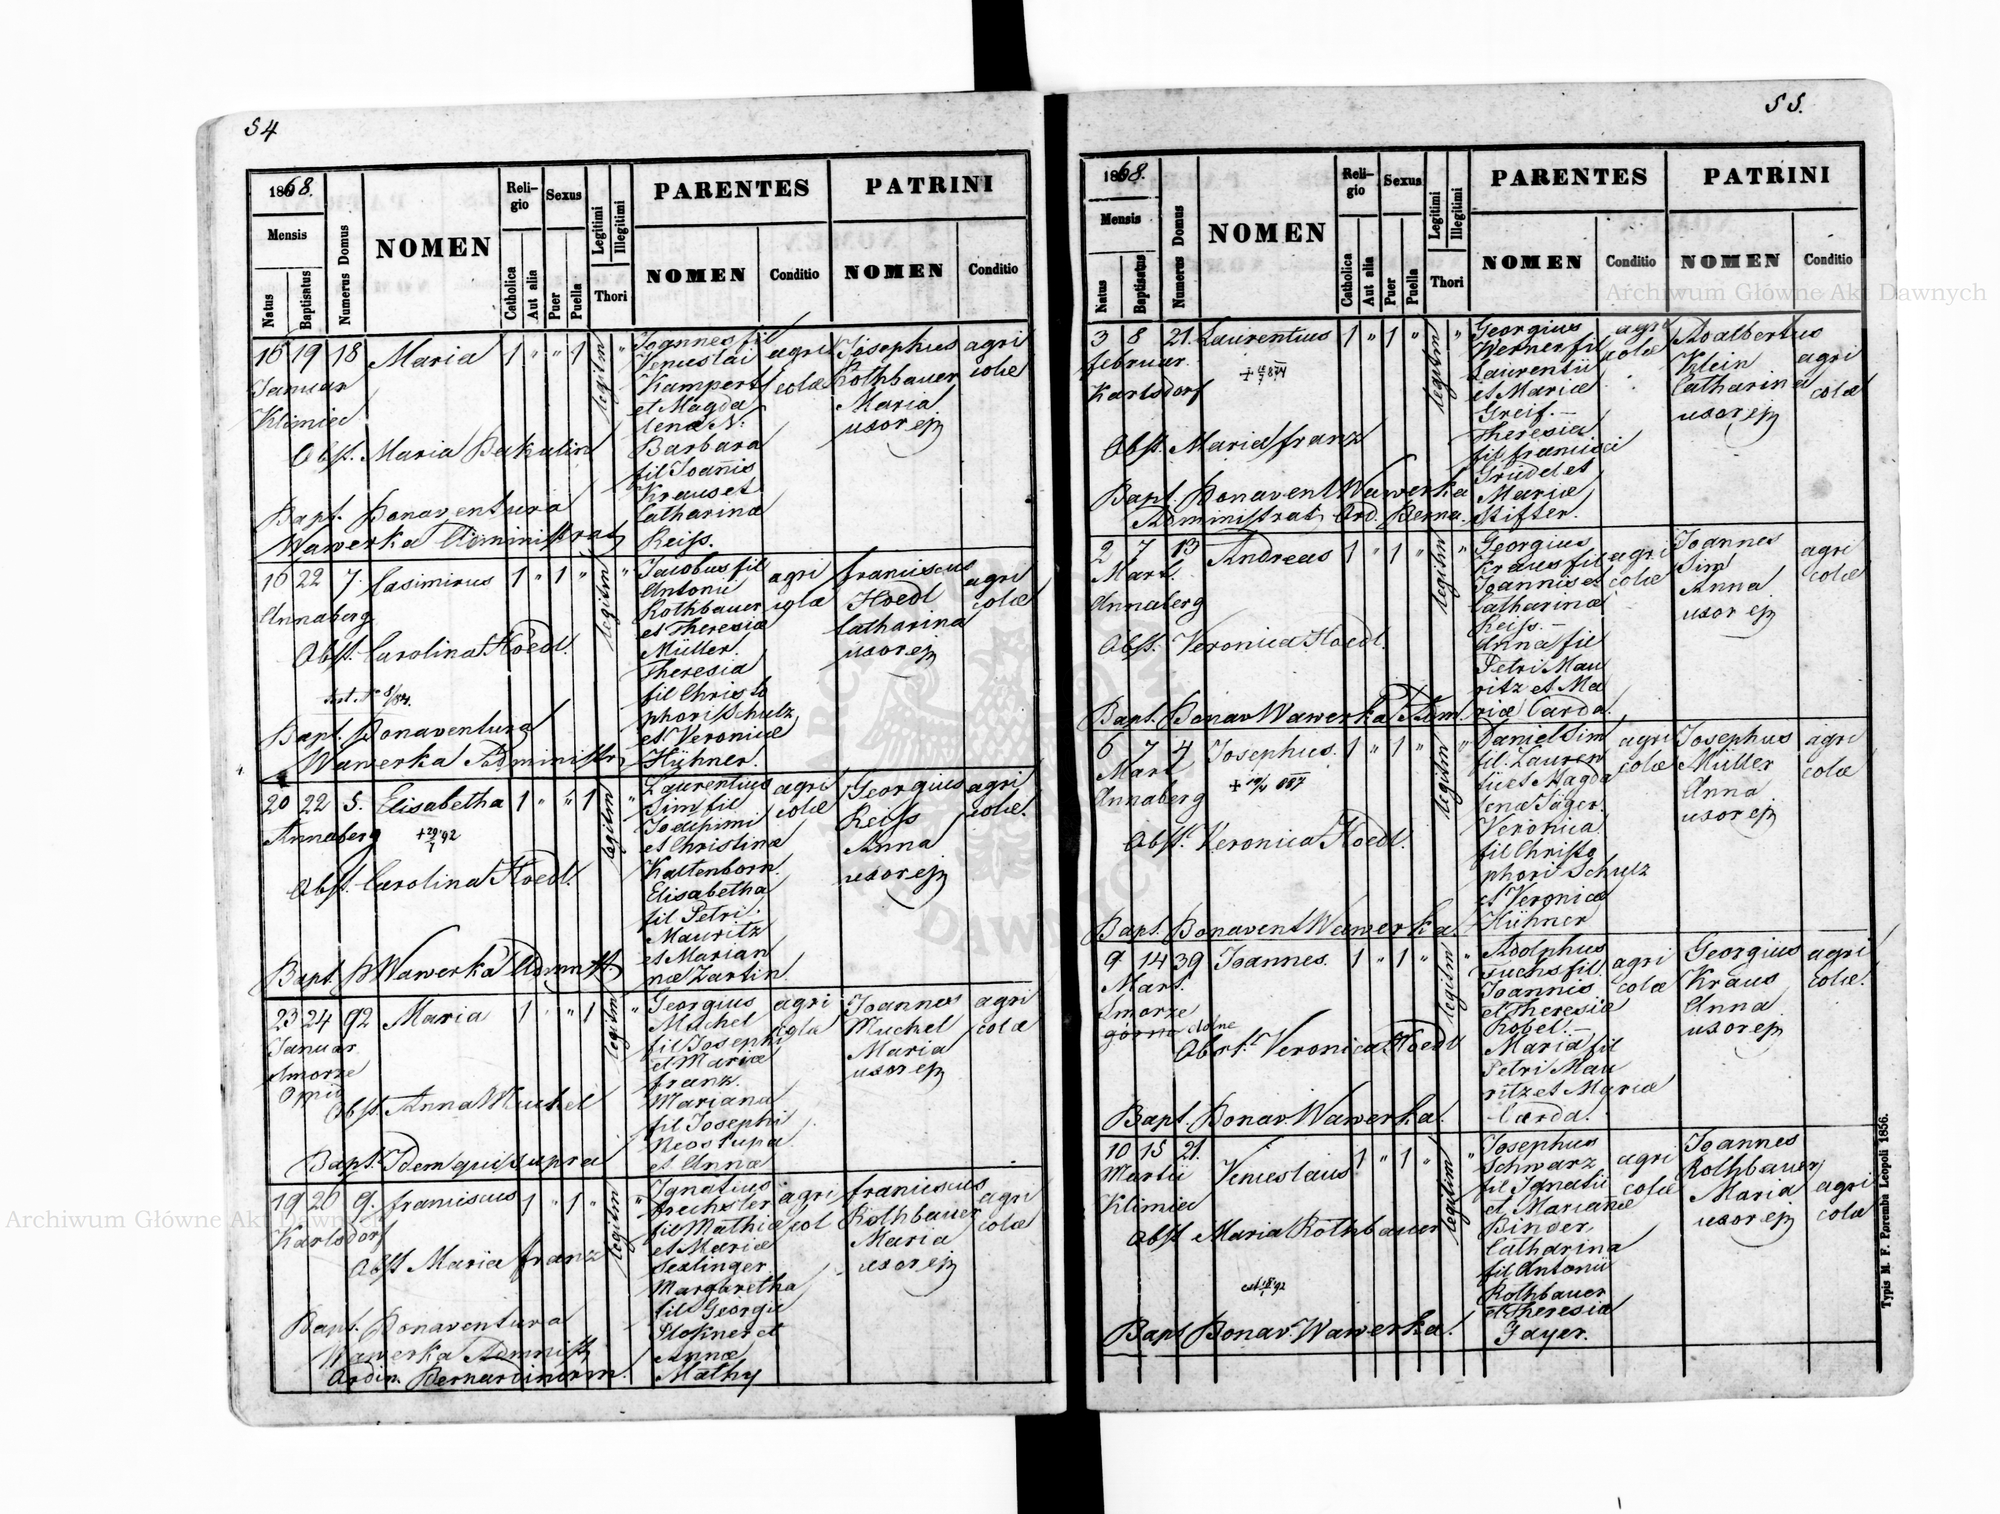 54
1868.
Mensis
Natus
Baptisatus
Numerus Domus
NOMEN
Reli-
gio
Catholica
Aut alia
Sexus
Puer
Puella
Legitimi
Illegitimi
Thori
PARENTES
NOMEN
Conditio
PATRINI
NOMEN
Conditio
16 19 18 Maria 1 " " 1 legitm "
Januar
Klimiec
Obst. Maria Bakalin
Bapt. Bonaventura
Wawerka Administrat
Joannes fil
Venceslai
Kampert
et Magda
lenæ N.
Barbara
fil Joanis
Kraus et
Catharinæ
Reiss.
agri
colæ
Josephus
Rothbauer
Maria
uxor ej
agri
colæ
16 22 7. Casimirus 1 " 1 " legitm "
Annaberg
Obst. Carolina Hoedl.
Bapt. Bonaventura
Wawerka Administr
Jacobus fil
Antonii
Rothbauer
et Theresiæ
Müller.
Theresia
fil Christo
phori Schulz
et Veronicæ
Hühner.
agri
colæ
Franciscus
Hoedl
Catharina
uxor ej
agri
colæ
20 22 5. Elisabetha 1 " " 1 legitm "
Annaberg
Obst. Carolina Hoedl.
Bapt. B Wawerka Admnst.
Laurentius
Sim fil
Joachimi
et Christinæ
Kaltenborn.
Elisabetha
fil Petri
Mauritz
et Marian
næ Zartin.
agri
colæ
Georgius
Reiss
Anna
uxor ej
agri
colæ.
23 24 92 Maria 1 " 1 legitm "
Januar
Smorze
Obst. Anna Muchel
Bapt. Idem qui supra
Georgius
Muchel
fil Josephi
et Mariæ
Franz.
Mariana
fil Josephi
Neostupa
et Annæ
agri
colæ
Joannes
Muchel
Maria
uxor ej
agri
colæ
19 26 9. Franciscus 1 " 1 " legitm "
Karlsdorf
Obst Maria Franz
Bapt. Bonaventura
Wawerka Admnist
Ordin. Bernardinorm.
Ignatius
Drechsler
fil Mathiæ
et Mariæ
Sexlinger
Margaretha
fil Georgii
Plokner et
Annæ
Mathy
agri
col
Franciscus
Rothbauer
Maria
uxor ej
agri
colæ
55.
1868.
Mensis
Natus
Baptisatus
Numerus Domus
NOMEN
Reli-
gio
Catholica
Aut alia
Sexus
Puer
Puella
Legitimi
Illegitimi
Thori
PARENTES
NOMEN
Conditio
PATRINI
NOMEN
Conditio
3 8 21. Laurentius 1 " 1 " legitm "
Februar.
Karlsdorf
Obst. Maria Franz
Bapt. Bonavent Wawerka
Administrat, Ord. Berna.
Georgius
Werner fil
Laurentii
et Mariæ
Greif.—
Theresia
fil Francisci
Grüdel et
Mariæ
Stifter.
agri
colæ
Adalbertus
Klein
Catharina
uxor ej
agri
colæ
2 7 13 Andreas 1 " 1 " legitm "
Mart.
Annaberg
Obst. Veronica Hoedl.
Bapt. Bonav Wawerka Adm.
Georgius
Kraus fil
Joannis et
Catharinæ
Reiss.—
Anna fil
Petri Mau
ritz et Ma
riæ Carda.
agri
colæ
Joannes
Sim
Anna
uxor ej
agri
colæ
6 7 4 Josephus. 1 " 1 " legitm "
Mart
Annaberg
Obst. Veronica Hoedl.
Bapt. Bonavent Wawerka
Daniel Sim
fil. Lauren
tii et Magda
lenæ Jäger.
Veronica
fil Christo
phori Schulz
et Veronicæ
Hühner
agri
colæ
Josephus
Müller
Anna
uxor ej
agri
colæ
9 14 39 Joannes. 1 " 1 " legitm "
Mart.
Smorze
górne dolne
Obst. Veronica Hoedl
Bapt. Bonav. Wawerka.
Adolphus
Fuchs fil.
Joannis
et Theresiæ
Kobel.—
Maria fil
Petri Mau
ritz et Mariæ
Carda.
agri
colæ
Georgius
Kraus
Anna
uxor ej
agri
colæ.
10 15 21. Venceslaus 1 " 1 " legitm "
Martii
Klimiec
Obst Maria Rothbauer
Bapt Bonav. Wawerka.
Josephus
Schwarz
fil Ignatii
et Marianæ
Binder,
Catharina
fil Antonii
Rothbauer
et Theresiæ
Fayer.
agri
colæ
Joannes
Rothbauer
Maria
uxor ej
agri
colæ
Typis M. F. Poremba Leopoli 1856.
Archiwum Główne Akt Dawnych
Archiwum Główne Akt Dawnych